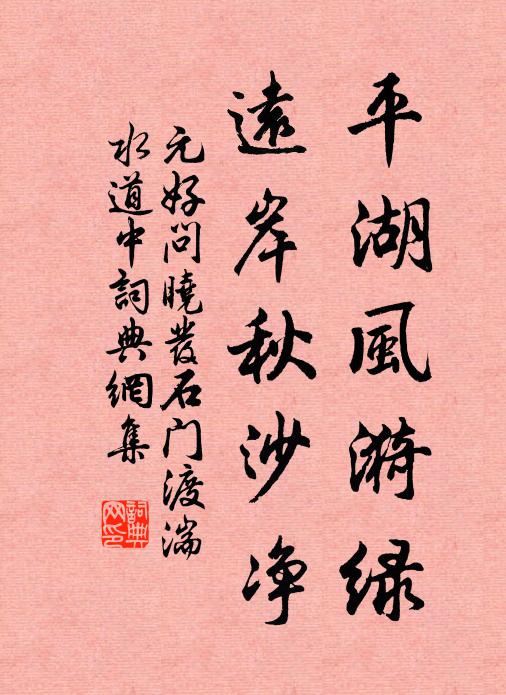 平湖風漪綠
遠岸秋沙净
元好問曉發石门渡湍
水道中詞典網集
詞典网印